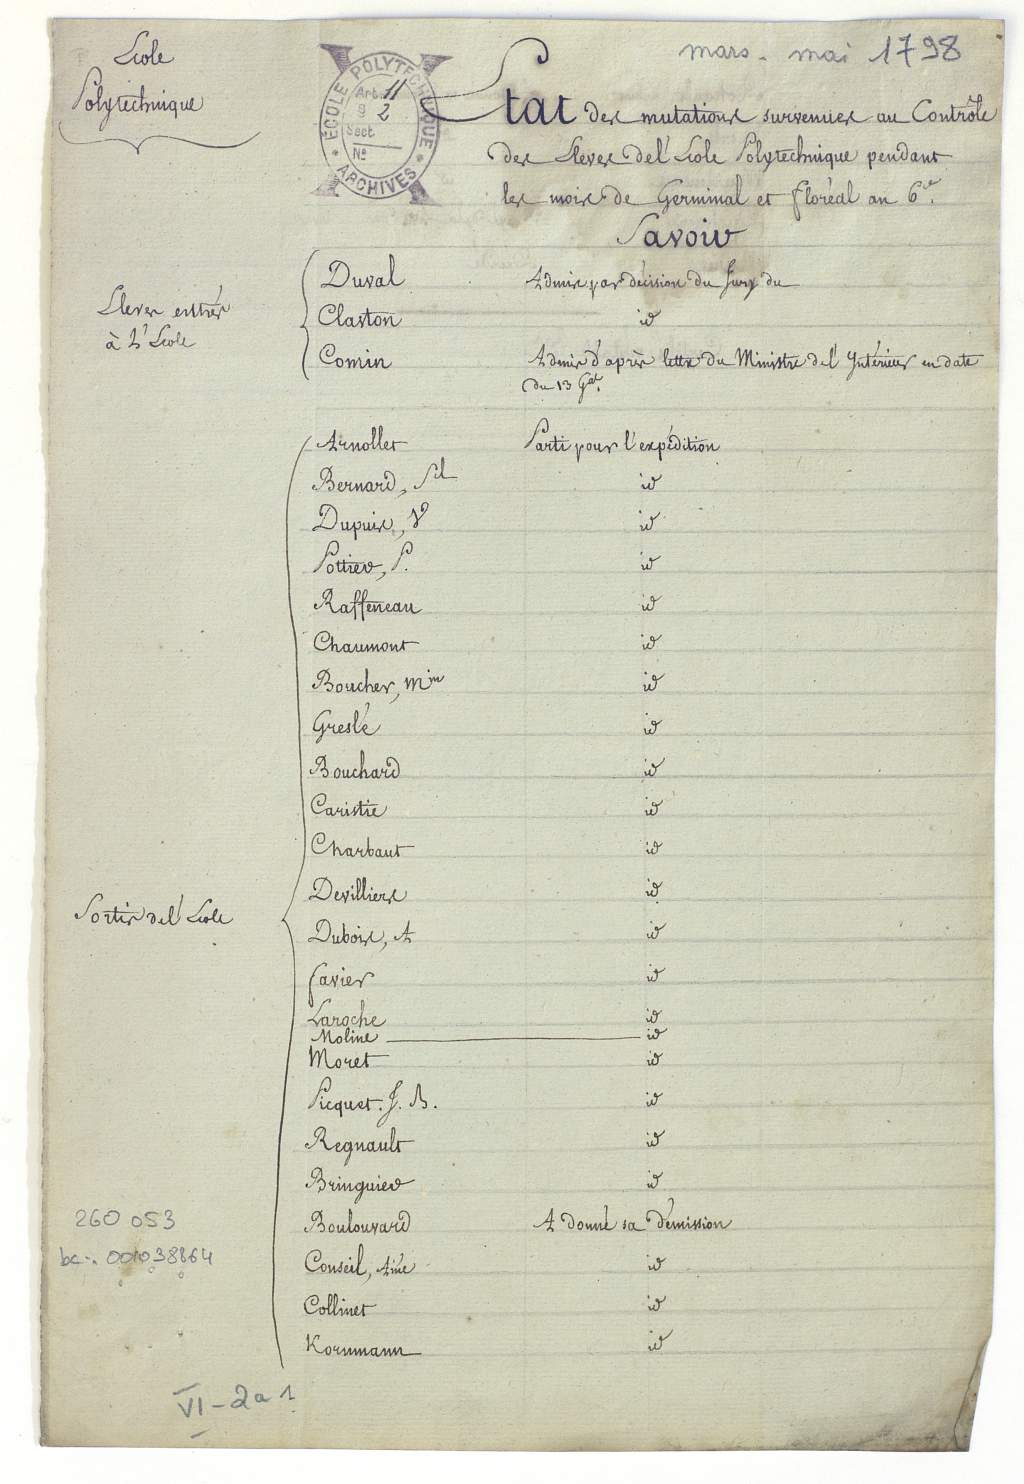 École
Polytechnique
ÉCOLE POLYTECHNIQUE
Art. 11
§ 2
Sect.
No
ARCHIVES
mars - mai 1798
Etat des mutations survenues au Contrôle
des Eleves de l'Ecole Polytechnique pendant
les mois de Germinal et floréal an 6e.
Savoir
Eleves entrés
à l'Ecole
Duval Admis par décision du Jury du
Claston id
Comin Admis d'après lettre du Ministre de l'Intérieur en date
du 13 Gal.
Sortis de l'Ecole
Arnollet Parti pour l'expédition
Bernard, Sel id
Dupuis, V id
Pottier, P. id
Raffeneau id
Chaumont id
Boucher, Min id
Greslé id
Bouchard id
Caristie id
Charbaut id
Devilliers id
Dubois, A id
favier id
Laroche id
Moline id
Moret id
Picquet. J. B. id
Regnault id
Bringuier id
Boulouvard A donné sa démission
Conseil, Aimé id
Collinet id
Kornmann id
260 053
bc-. 001038864
VI-2a1